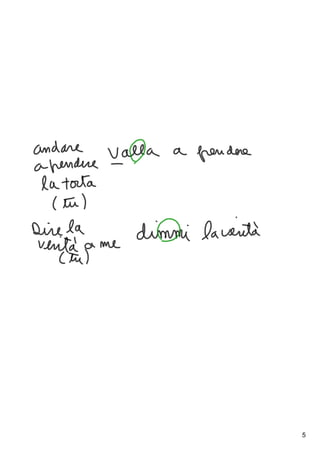 andare valla a prendere
a prendere
la torta
(tu)
Dire la dimmi la verità
verità a me
(tu)
5